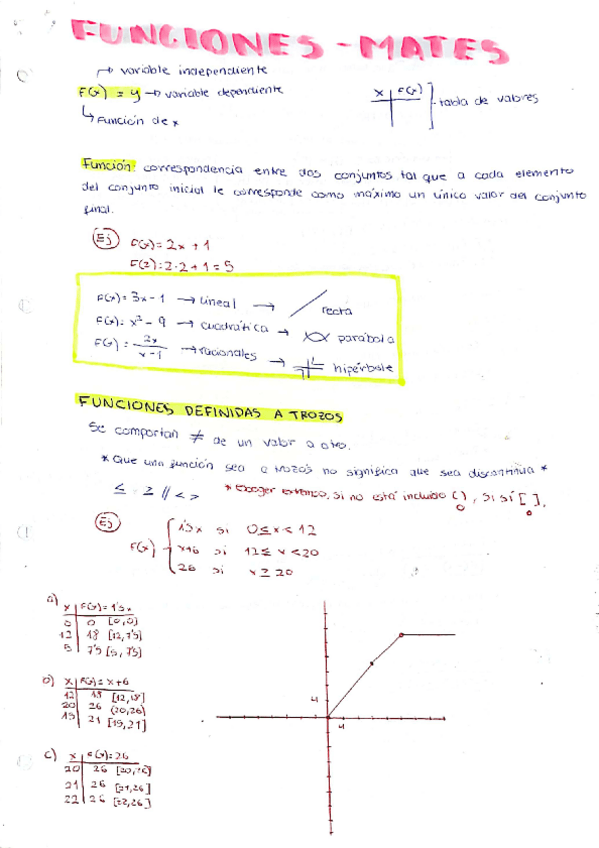 FUNCIONES - MATES
variable independiente
F(x) = y → variable dependiente
Función de x
x | F(x)
tabla de valores
Función: correspondencia entre dos conjuntos tal que a cada elemento
del conjunto inicial le corresponde como máximo un único valor del conjunto
final.
Ej F(x) = 2x + 1
F(2) = 2·2 + 1 = 5
F(x) = 3x - 1 → lineal → recta
F(x) = x² - 9 → cuadrática → parábola
F(x) = 2x/x-1 → racionales → hipérbole
FUNCIONES DEFINIDAS A TROZOS
Se comportan ≠ de un valor a otro.
* Que una función sea a trozos no significa que sea discontinua *
≤ = ≥ // < >
* Escoger extremo, si no está incluido ( ), si sí [ ].
Ej
F(x)
1'5x si 0 ≤ x < 12
x+6 si 12 ≤ x < 20
26 si x ≥ 20
a)
x | F(x) = 1'5x
0 | 0 [0,0]
12 | 18 [12,7'5]
5 | 7'5 [5,7'5]
b)
x | F(x) = x+6
12 | 18 [12,18]
20 | 26 (20,26)
15 | 21 [15,21]
c)
x | F(x) = 26
20 | 26 [20,26]
21 | 26 [21,26]
22 | 26 [22,26]
4
4